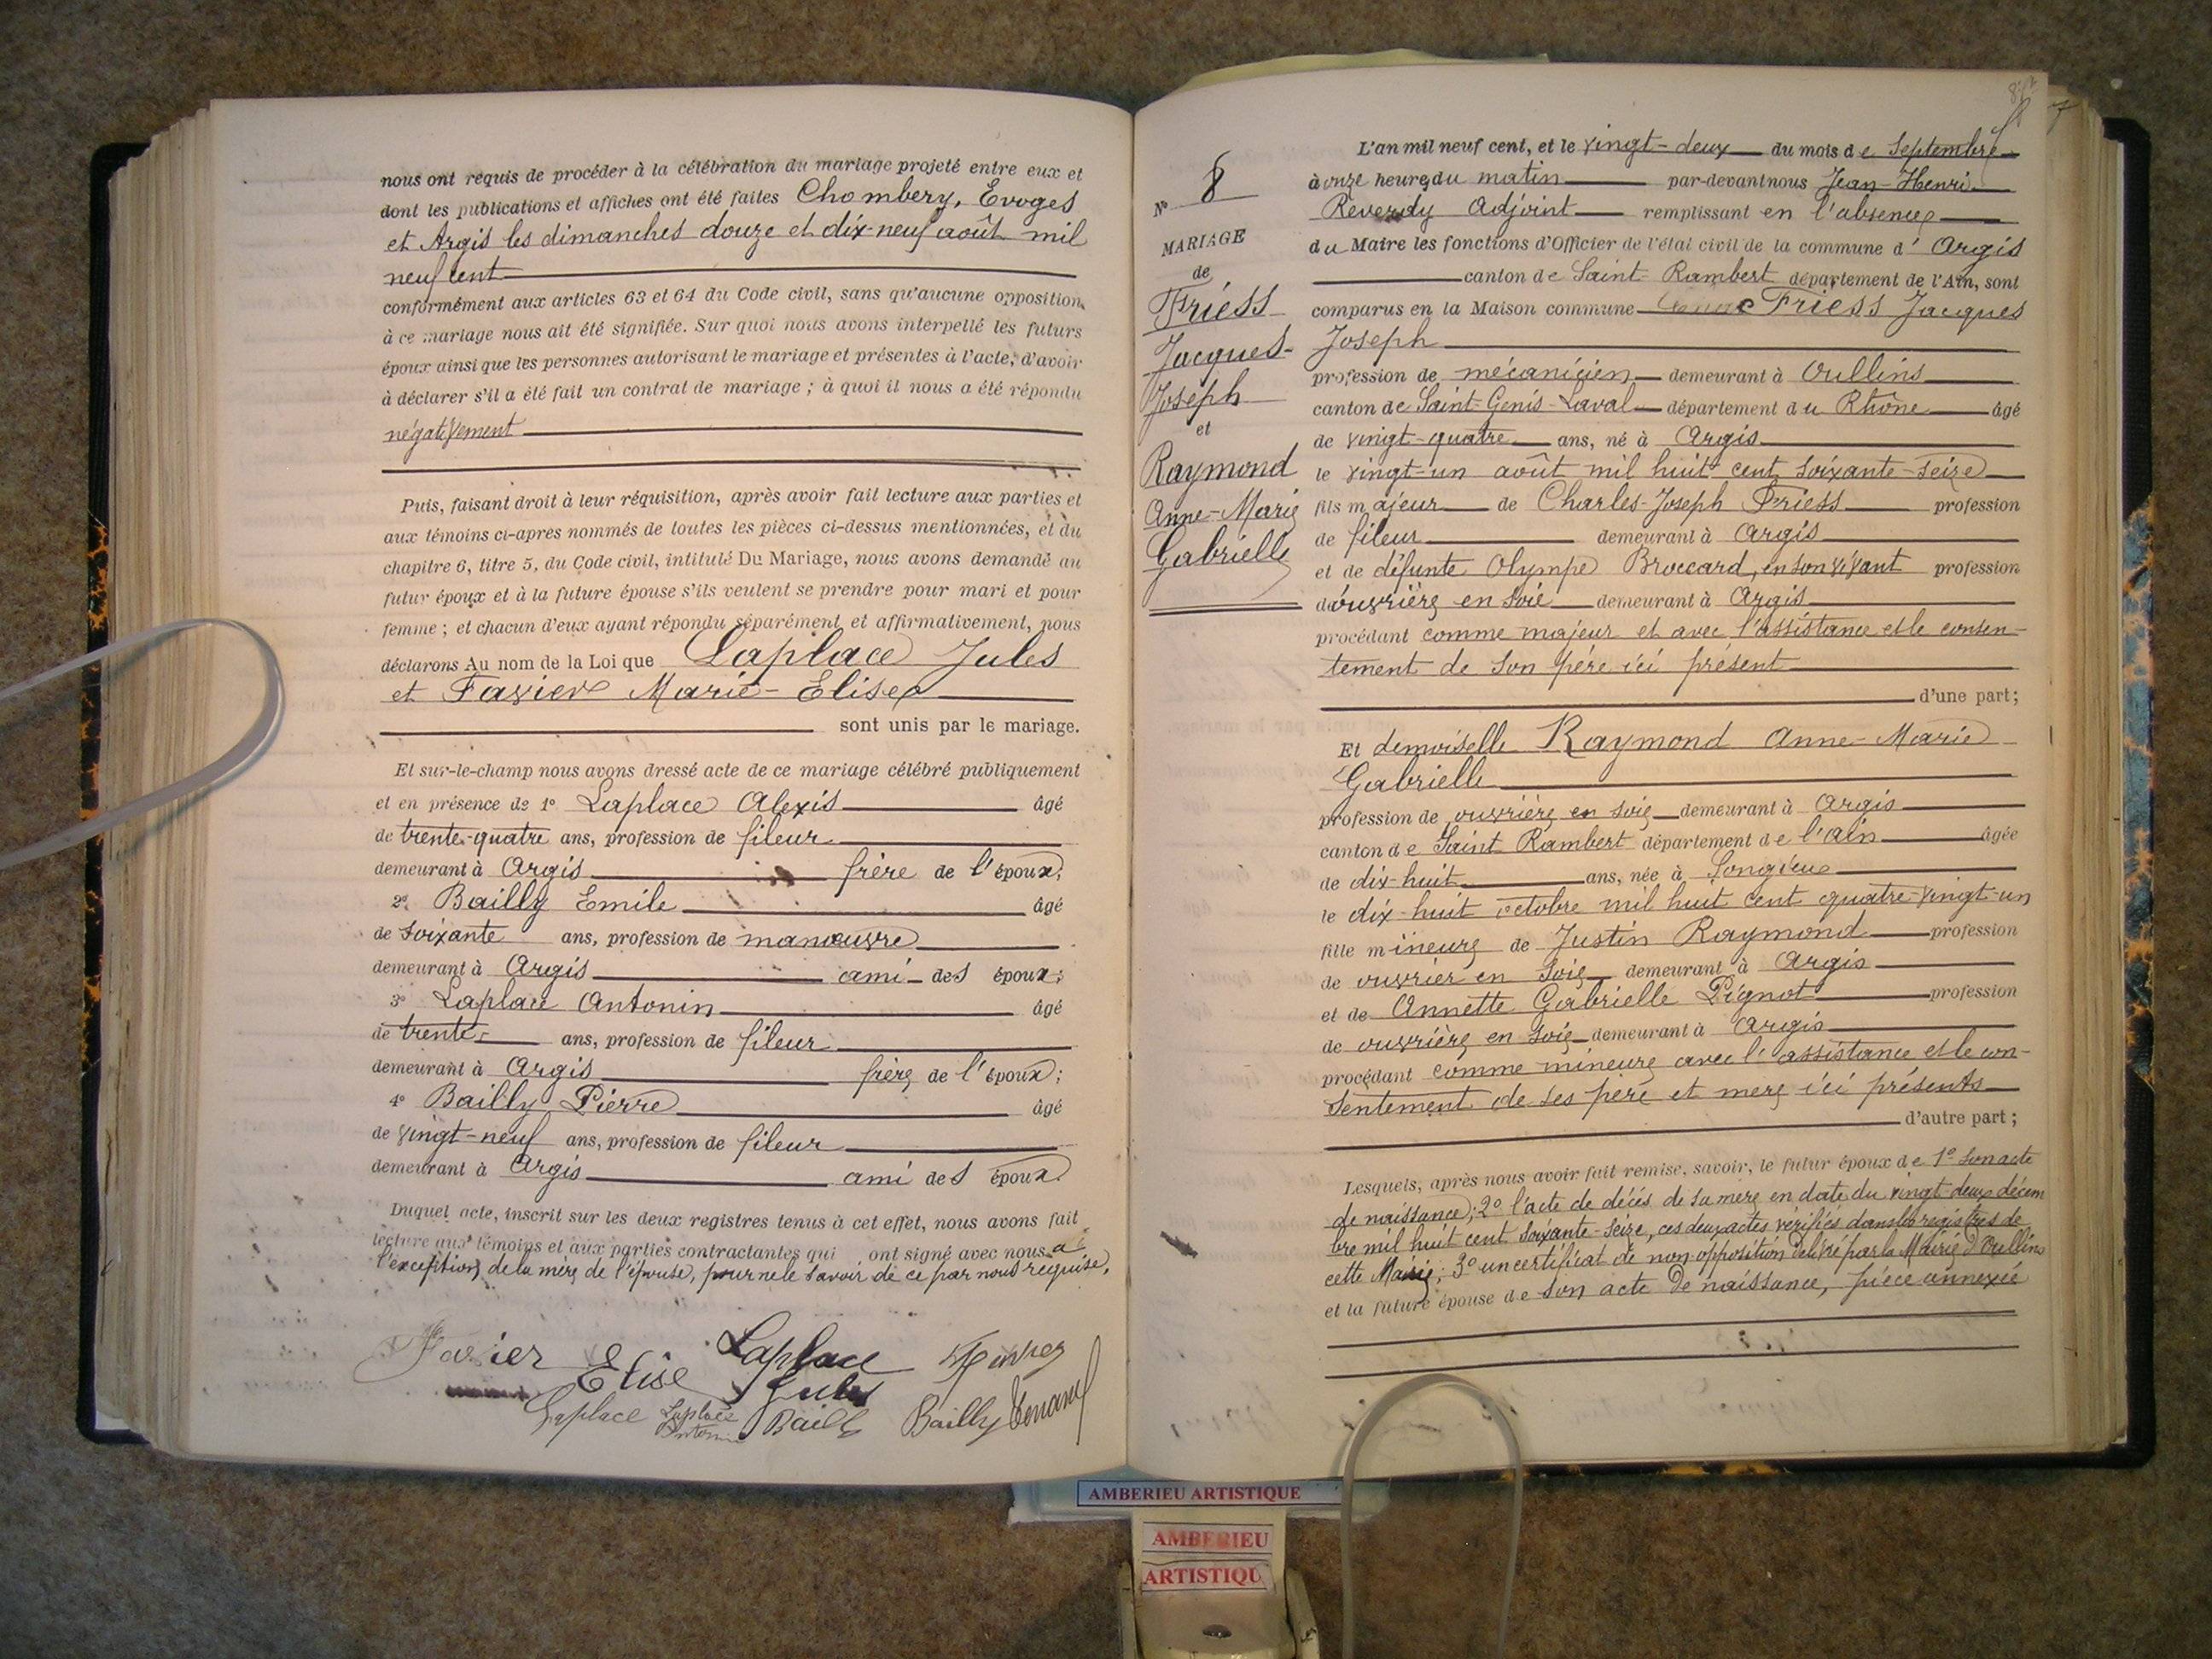 nous ont requis de procéder à la célébration du mariage projeté entre eux et
dont les publications et affiches ont été faites Chombery, Evoges
et Argis les dimanches douze et dix-neuf août mil
neuf cent
conformément aux articles 63 et 64 du Code civil, sans qu'aucune opposition
à ce mariage nous ait été signifiée. Sur quoi nous avons interpellé les futurs
époux ainsi que les personnes autorisant le mariage et présentes à l'acte, d'avoir
à déclarer s'il a été fait un contrat de mariage ; à quoi il nous a été répondu
négativement
Puis, faisant droit à leur réquisition, après avoir fait lecture aux parties et
aux témoins ci-après nommés de toutes les pièces ci-dessus mentionnées, et du
chapitre 6, titre 5, du Code civil, intitulé Du Mariage, nous avons demandé au
futur époux et à la future épouse s'ils veulent se prendre pour mari et pour
femme ; et chacun d'eux ayant répondu séparément et affirmativement, nous
déclarons Au nom de la Loi que Laplace Jules
et Favier Marie-Elise
sont unis par le mariage.
Et sur-le-champ nous avons dressé acte de ce mariage célébré publiquement
et en présence de 1° Laplace Alexis âgé
de trente-quatre ans, profession de fileur
demeurant à Argis frère de l'époux;
2° Bailly Emile âgé
de soixante ans, profession de manœuvre
demeurant à Argis ami des époux;
3° Laplace Antonin âgé
de trente ans, profession de fileur
demeurant à Argis frère de l'époux;
4° Bailly Pierre âgé
de vingt-neuf ans, profession de fileur
demeurant à Argis ami des époux
Duquel acte, inscrit sur les deux registres tenus à cet effet, nous avons fait
lecture aux témoins et aux parties contractantes qui ont signé avec nous à
l'exception de la mère de l'épouse, pour ne le savoir de ce par nous requise.
Favier Elise Laplace Jules
Laplace Laplace Antonin Bailly Bailly
N° 8
MARIAGE
de
Friess
Jacques-
Joseph
et
Raymond
Anne-Marie
Gabrielle
L'an mil neuf cent, et le vingt-deux du mois de Septembre
à onze heures du matin par-devant nous Jean-Henri
Reverdy Adjoint remplissant en l'absence
du Maire les fonctions d'Officier de l'état civil de la commune d'Argis
canton de Saint-Rambert département de l'Ain, sont
comparus en la Maison commune Friess Jacques
Joseph
profession de mécanicien demeurant à Oullins
canton de Saint-Genis-Laval département du Rhône âgé
de vingt-quatre ans, né à Argis
le vingt-un août mil huit cent soixante-seize
fils majeur de Charles-Joseph Friess profession
de fileur demeurant à Argis
et de défunte Olympe Broccard, en son vivant profession
d'ouvrière en soie demeurant à Argis
procédant comme majeur et avec l'assistance et le consen-
tement de son père ici présent
d'une part;
Et demoiselle Raymond Anne-Marie
Gabrielle
profession de ouvrière en soie demeurant à Argis
canton de Saint Rambert département de l'Ain âgée
de dix-huit ans, née à Songieu
le dix-huit octobre mil huit cent quatre-vingt-un
fille mineure de Justin Raymond profession
de ouvrier en soie demeurant à Argis
et de Annette Gabrielle Pignot profession
de ouvrière en soie demeurant à Argis
procédant comme mineure avec l'assistance et le con-
sentement de ses père et mère ici présents
d'autre part ;
Lesquels, après nous avoir fait remise, savoir, le futur époux de 1° son acte
de naissance; 2° l'acte de décès de sa mère en date du vingt deux décem
bre mil huit cent soixante-seize, ces deux actes vérifiés dans les registres de
cette Mairie; 3° un certificat de non opposition délivré par la Mairie d'Oullins
et la future épouse de son acte de naissance, pièce annexée
AMBERIEU ARTISTIQUE
AMBERIEU
ARTISTIQU